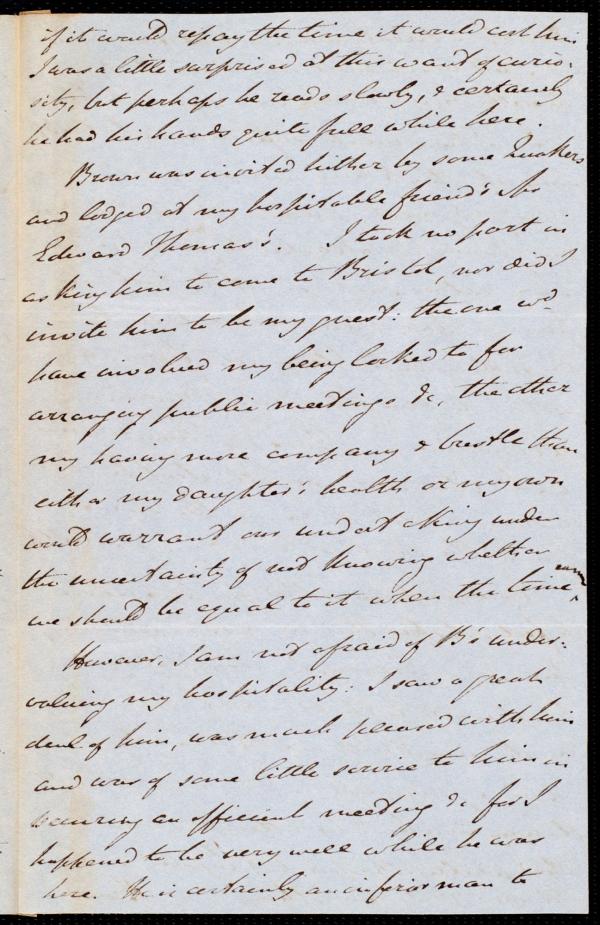 if it would repay the time it would cost him
I was a little surprised at this want of curio-
sity, but perhaps he reads slowly, & certainly
he had his hands quite full while here.
Brown was invited hither by some Quakers
and lodged at my hospitable friend's Mr
Edward Thomas's. I took no part in
asking him to come to Bristol, nor did I
invite him to be my guest: the one wd
have involved my being looked to for
arranging public meetings &c, the other
my having more company & bustle than
either my daughter's health or my own
would warrant our undertaking under
the uncertainty of not knowing whether
we should be equal to it when the time came
However, I am not afraid of B's under-
valuing my hospitality: I saw a great
deal of him, was much pleased with him
and was of some little service to him in
securing an efficient meeting &c for I
happened to be very well while he was
here. He is certainly an inferior man to